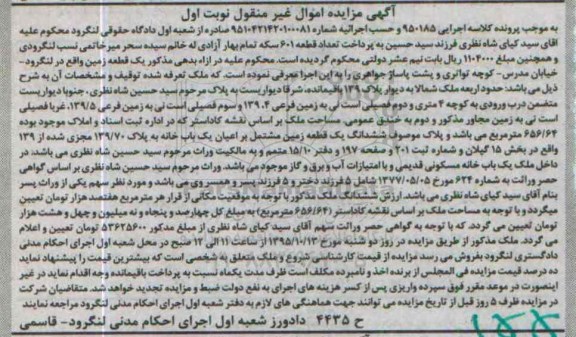 آگهی مزایده اموال غیر منقول نوبت اول
به موجب پرونده کلاسه اجرایی ۹۵۰۱۸۵ و حسب اجرائیه شماره ۹۵۱۰۴۲۱۴۲۰۱۰۰۰۸۱ صادره از شعبه اول دادگاه حقوقی لنگرود محکوم علیه
اقای سید کیای شاه نظری فرزند سید حسین به پرداخت تعداد قطعه ۶۰۱ سکه تمام بهار آزادی له خانم سیده سحر میرخاتمی نسب لنگرودی
و همچنین مبلغ ۱۱۰۴۰۰۰ ریال بابت نیم عشر دولتی محکوم گردیده است. محکوم علیه در ازاء بدهی مذکور یک قطعه زمین واقع در لنگرود-
خیابان مدرس- کوچه توانری و پشت پاساژ جواهری را به این اجرا معرفی نموده است. که ملک تعرفه شده توقیف و مشخصات آن به شرح
ذیل می باشد: حدود اربعه ملک شمالا به دیوار پلاک ۱۳۹ باقیمانده، شرقا دیواریست به پلاک مرحوم سید حسین شاه نظری، جنوبا دیواریست
متضمن درب ورودی به کوچه ۴ متری و دوم فصیلی است نی به زمین فرعی ۱۳۹.۴ و سوم فصیلی است نی به زمین فرعی ۱۳۹/۵، غربا فصیلی
است نی به زمین مجاور مذکور و دوم به خندق عمومی. مساحت ملک بر اساس نقشه کاداستر که در اداره ثبت اسناد و املاک موجود بوده
۶۵۶/۶۴ مترمربع می باشد و پلاک موصوف ششدانگ یک قطعه زمین مشتمل بر اعیان یک باب خانه به پلاک ۱۳۹/۷۰ مجزی شده از ۱۳۹
واقع در بخش ۱۵ گیلان و شماره ثبت ۲۰۱ و صفحه ۱۹۷ و دفتر ۱۵/۱۰ متمم و به مالکیت وراث مرحوم سید حسین شاه نظری می باشد. در
داخل ملک یک باب خانه مسکونی قدیمی و با امتیازات آب و برق و گاز موجود می باشد. وراث مرحوم سید حسین شاه نظری بر اساس گواهی
حصر وراثت به شماره ۶۲۴ مورخ ۱۳۷۷/۰۵/۰۵ شامل ۵ فرزند دختر و ۵ فرزند پسر و همسر وی می باشد و مورد نظر سهم یکی از وراث پسر
بنام آقای سید کیای شاه نظری می باشد. ارزش ششدانگ ملک مذکور با توجه به موقعیت مکانی از قرار هر مترمربع هفتصد هزار تومان تعیین
میگردد و با توجه به مساحت ملک بر اساس نقشه کاداستر (۶۵۶/۶۴ مترمربع) به مبلغ کل چهارصد و پنجاه و نه میلیون و چهل و هشت هزار
تومان تعیین می گردد. که با توجه به گواهی حصر وراثت سهم آقای سید کیای شاه نظری از مبلغ مذکور ۵۳۶۲۵۶۰۰ تومان تعیین و اعلام
می گردد. ملک مذکور از طریق مزایده در روز دو شنبه مورخ ۱۳۹۵/۱۰/۱۳ از ساعت ۱۱ الی ۱۲ صبح در محل شعبه اول اجرای احکام مدنی
دادگستری لنگرود بفروش می رسد مزایده از قیمت کارشناسی شروع و ملک متعلق به شخصی است که بیشترین قیمت را پیشنهاد نماید
ده درصد قیمت مزایده فی المجلس از برنده اخذ و نامبرده مکلف است ظرف مدت یکماه نسبت به پرداخت باقیمانده وجه اقدام نماید در غیر
اینصورت در موعد مقرر فوق سپرده واریزی پس از کسر هزینه های اجرای به نفع دولت ضبط و مزایده تجدید خواهد شد. متقاضیان شرکت
در مزایده ظرف ۵ روز قبل از تاریخ مزایده می توانند جهت هماهنگی های لازم به دفتر شعبه اول اجرای احکام مدنی لنگرود مراجعه نمایند
ح ۴۴۳۵ دادورز شعبه اول اجرای احکام مدنی لنگرود- قاسمی